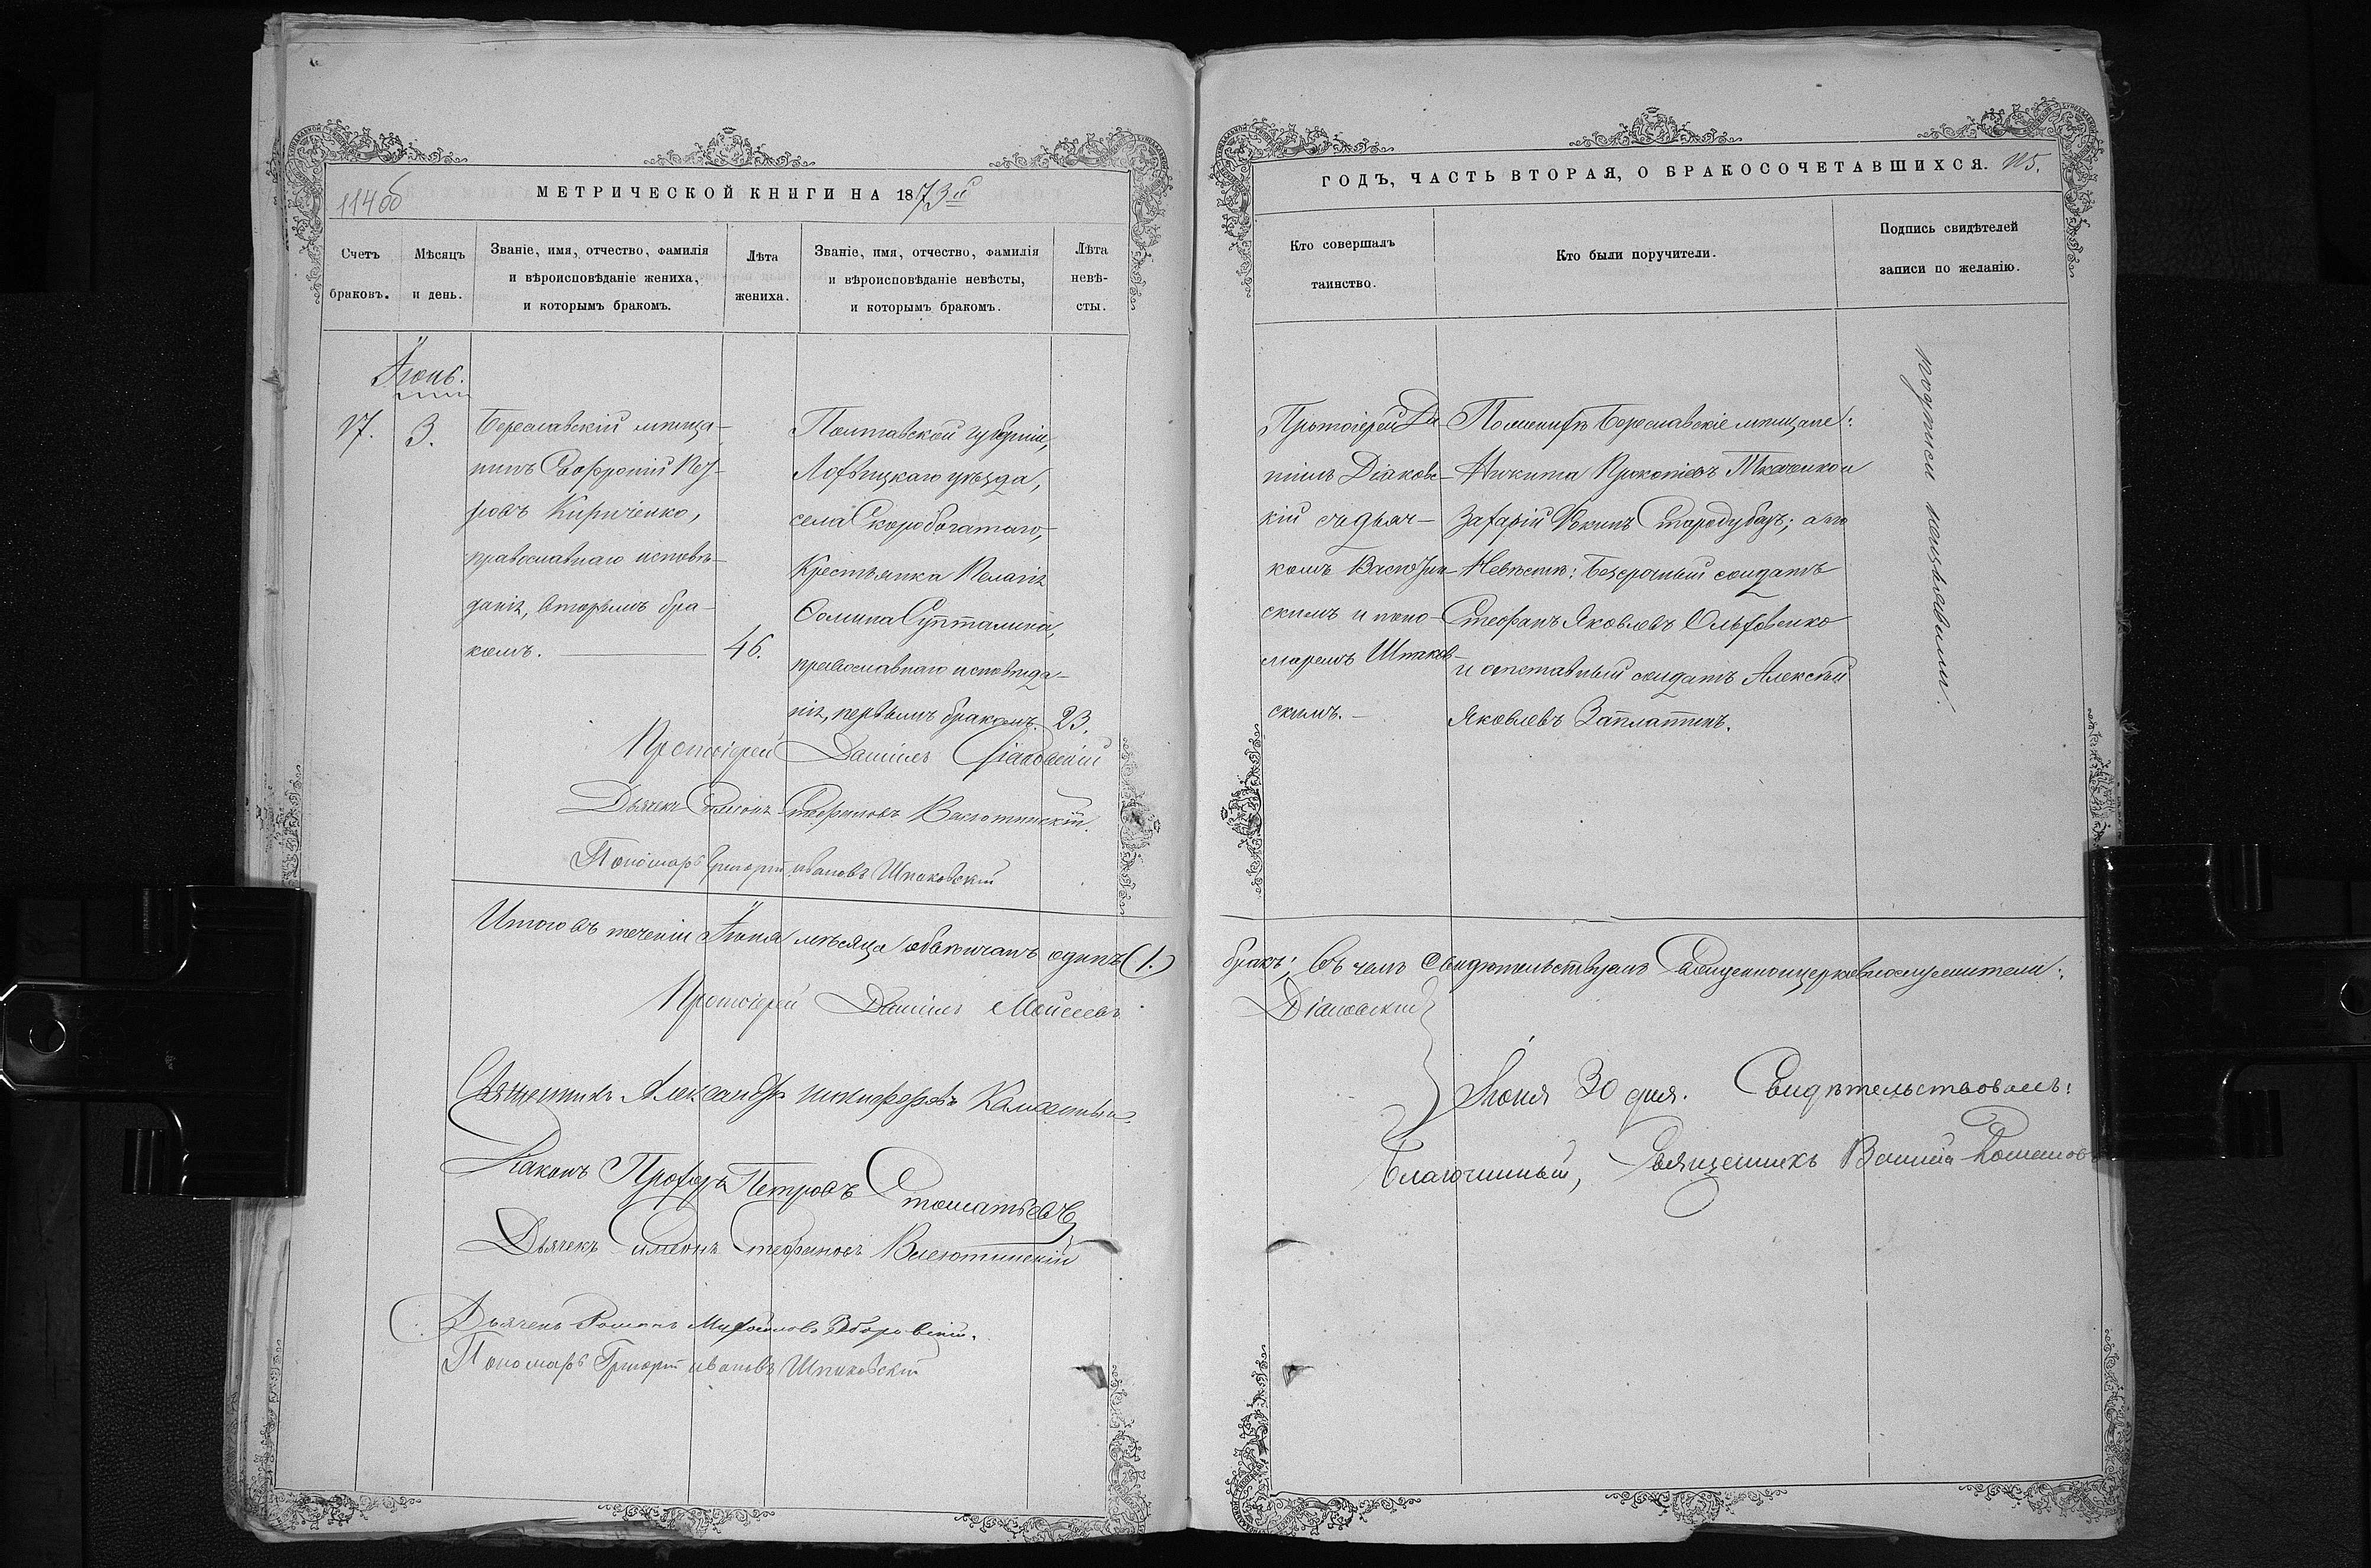 114об
МЕТРИЧЕСКОЙ КНИГИ НА 1873й
Счетъ браковъ.
Мѣсяцъ и день.
Званіе, имя, отчество, фамилія
и вѣроисповѣданіе жениха,
и которымъ бракомъ.
Лѣта жениха.
Званіе, имя, отчество, фамилія
и вѣроисповѣданіе невѣсты,
и которымъ бракомъ.
Лѣта невѣ-
сты.
Іюнь.
17.
3.
Береславскій мѣща-
нинъ Софроній
Кириченко,
православнаго исповѣ-
данія, вторымъ бра-
комъ.
46.
Полтавской губерніи,
Лохвицкаго уѣзда,
села Скоробогатаго,
Крестьянка Пелагія
Ѳомина
православнаго исповѣда-
нія, первымъ бракомъ.
23.
Протоіерей Даніилъ Діаковскій
Дьячекъ Симеонъ Стефановъ Васютинскій.
Пономарь Григорій ивановъ Шпаковскій
Итого въ теченіи Іюня мѣсяца обвѣнчанъ одинъ (1.)
Протоіерей Даніилъ Моисеевъ
Священникъ Александръ никифоровъ
Діаконъ Прохоръ Петровъ
Дьячекъ Симеонъ Стефановъ Васютинскій
Дьячекъ Романъ Михайловъ Зборовскій.
Пономарь Григорій ивановъ Шпаковскій
ГОДЪ, ЧАСТЬ ВТОРАЯ, О БРАКОСОЧЕТАВШИХСЯ. 115.
Кто совершалъ
таинство.
Кто были поручители.
Подпись свидѣтелей
записи по желанію.
Протоіерей Да-
ніилъ Діаковс-
кій съ дьяч-
комъ Васютин-
скимъ и поно-
маремъ Шпаков-
скимъ.
По женихѣ Береславскіе мѣщане:
Никита Прокопіевъ Ткаченко и
Захарій Стародубъ; а по
Невѣстѣ: безсрочный солдатъ
Стефанъ Яковлевъ Ольховенко
и отставный солдатъ Алексѣй
Яковлевъ Заплатинъ.
подписи не изъявили.
бракъ; въ чемъ свидѣтельствуемъ Священноцерковнослужители:
Діаковскій
Іюня 30 дня. Свидѣтельствовалъ:
Благочинный, Священникъ